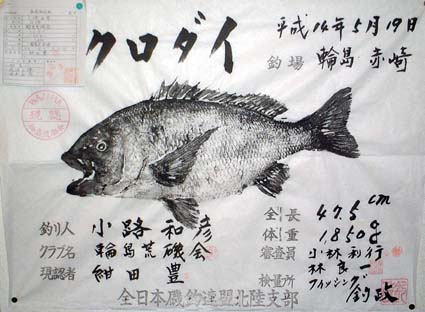 クロダイ
平成14年5月19日
釣場 輪島 赤崎
釣り人 小路 和彦
クラブ名 輪島荒磯会
現認者 紺田 豊
全長 47.5cm
体重 1,850g
審査員 小林 利行
林 良一
検量所 フィッシング 釣政
全日本磯釣連盟北陸支部